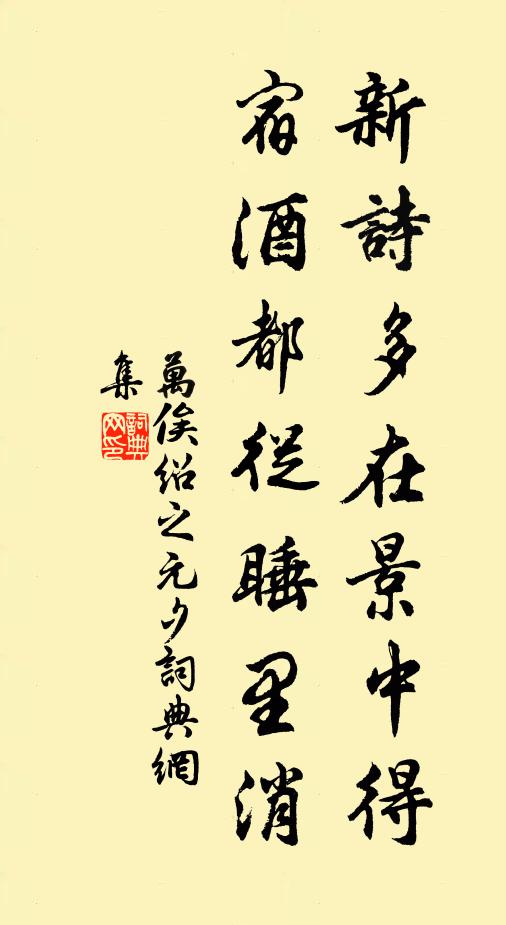 新詩多在景中得
宿酒都從睡里消
萬俟紹之元夕詞典網
集
詞典網印